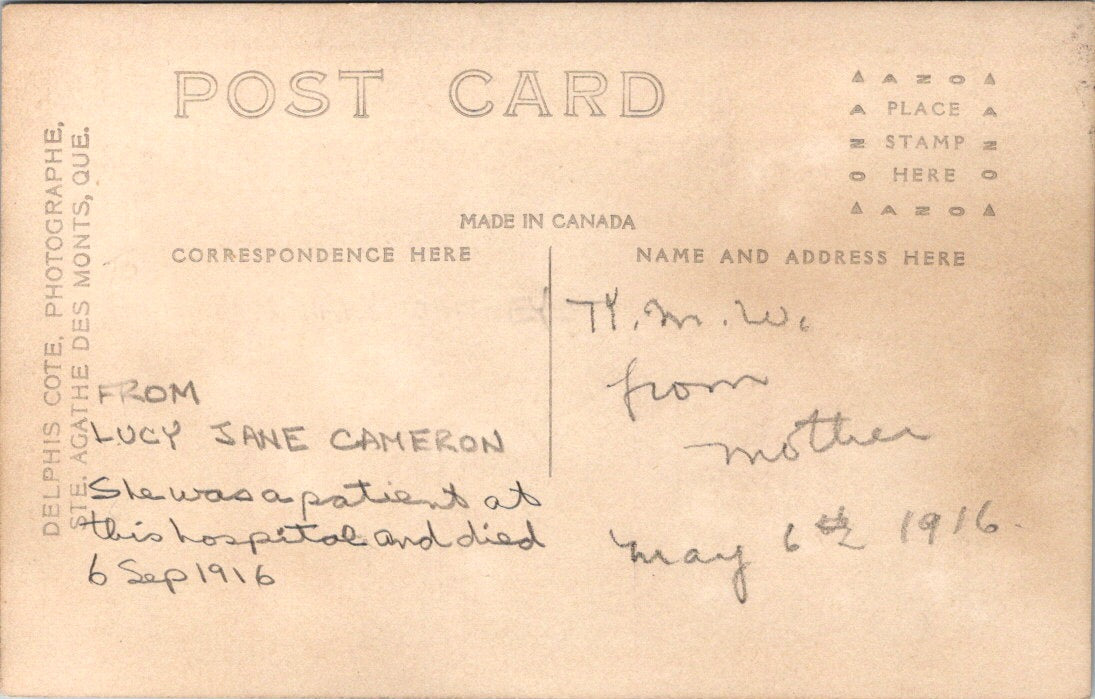 POST CARD
AZOA
A PLACE A
N STAMP N
O HERE O
AZOA
MADE IN CANADA
CORRESPONDENCE HERE
NAME AND ADDRESS HERE
DELPHIS COTE, PHOTOGRAPHE,
STE. AGATHE DES MONTS, QUE.
FROM
LUCY JANE CAMERON
She was a patient at
this hospital and died
6 Sep 1916
M. W.
from
mother
May 6th 1916.